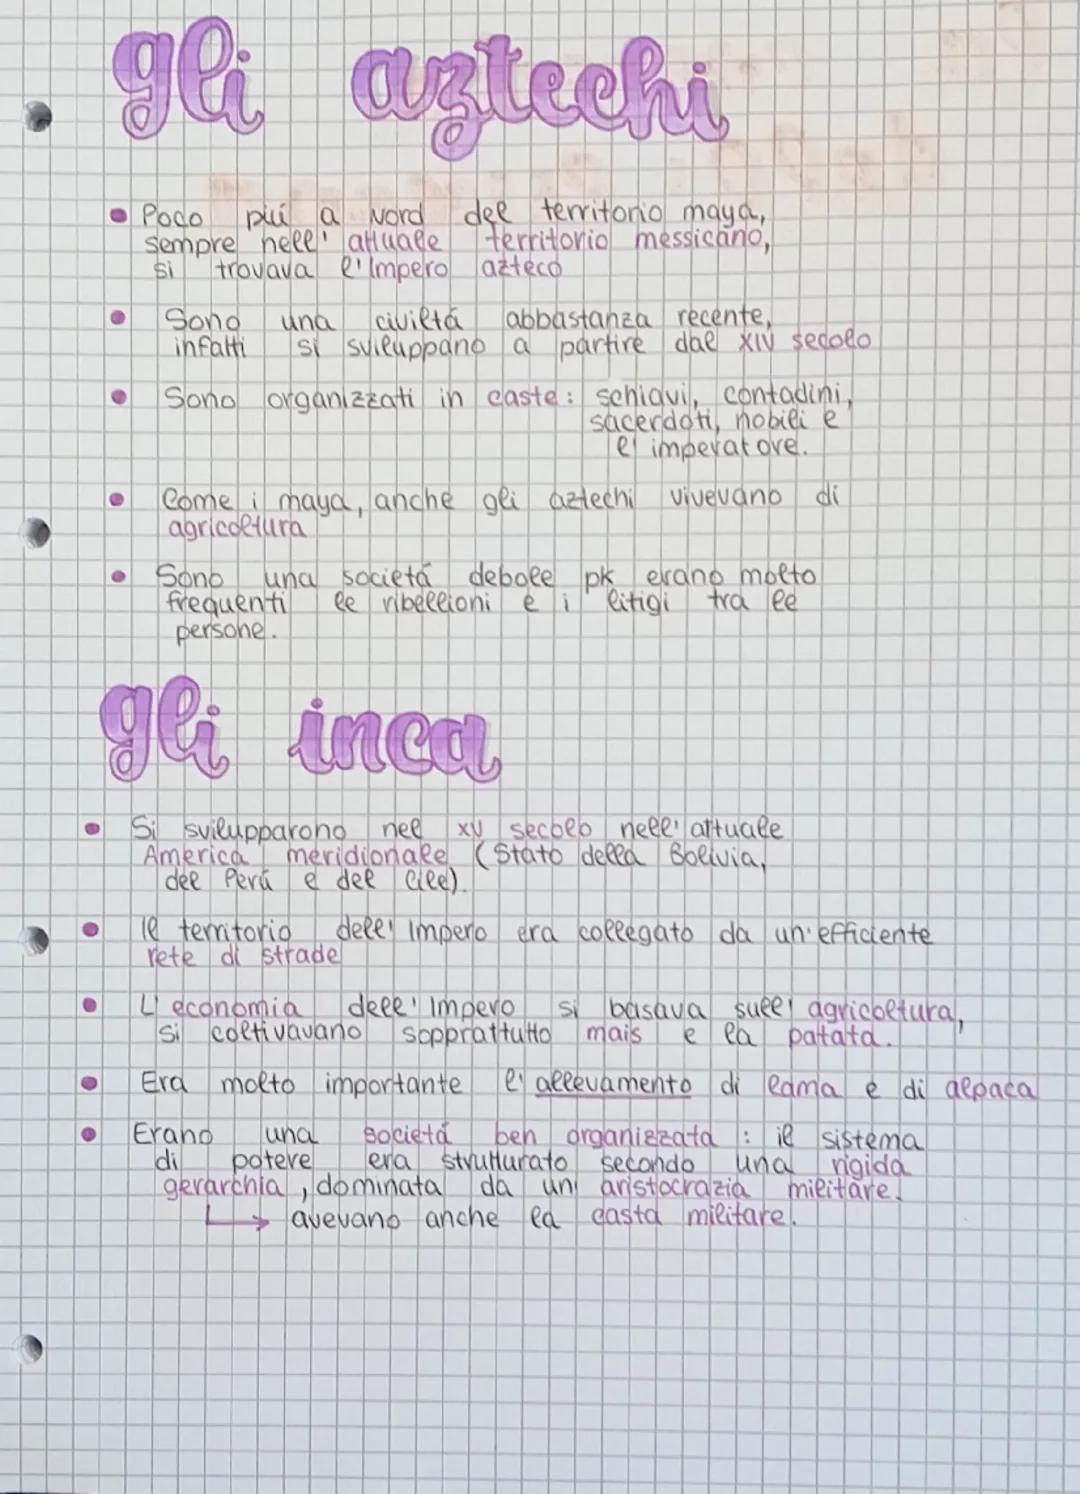 gli aztechi
• Poco più a Nord del territorio maya,
sempre nell' attuale territorio messicano,
si trovava l'Impero azteco
• Sono una civiltá abbastanza recente,
infatti si sviluppano a partire dal XIV secolo
• Sono organizzati in caste: schiavi, contadini,
sacerdoti, nobili e
l' imperatore.
• Come i maya, anche gli aztechi vivevano di
agricoltura
• Sono una societá debole pk erano molto
frequenti le ribellioni e i litigi tra le
persone.
gli inca
• Si svilupparono nel XV secolo nell' attuale
America meridionale (Stato della Bolivia,
del Perú e del Cile).
• Il territorio dell' Impero era collegato da un'efficiente
rete di strade
• L' economia dell' Impero si basava sull' agricoltura,
si coltivavano sopprattutto mais e la patata.
• Era molto importante l' allevamento di lama e di alpaca
• Erano una societá ben organizzata : il sistema
di potere era strutturato secondo una rigida
gerarchia, dominata da un' aristocrazia militare.
↳ avevano anche la casta militare.